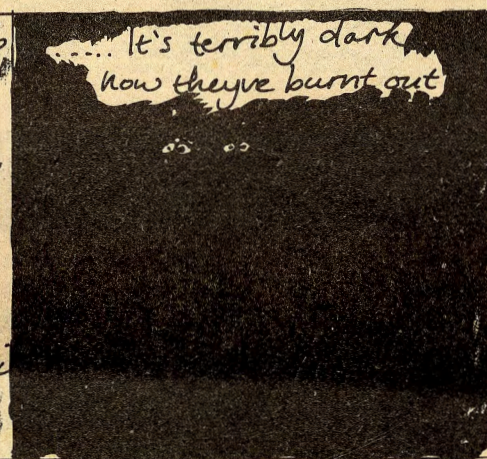 ..... It's terribly dark
now theyve burnt out